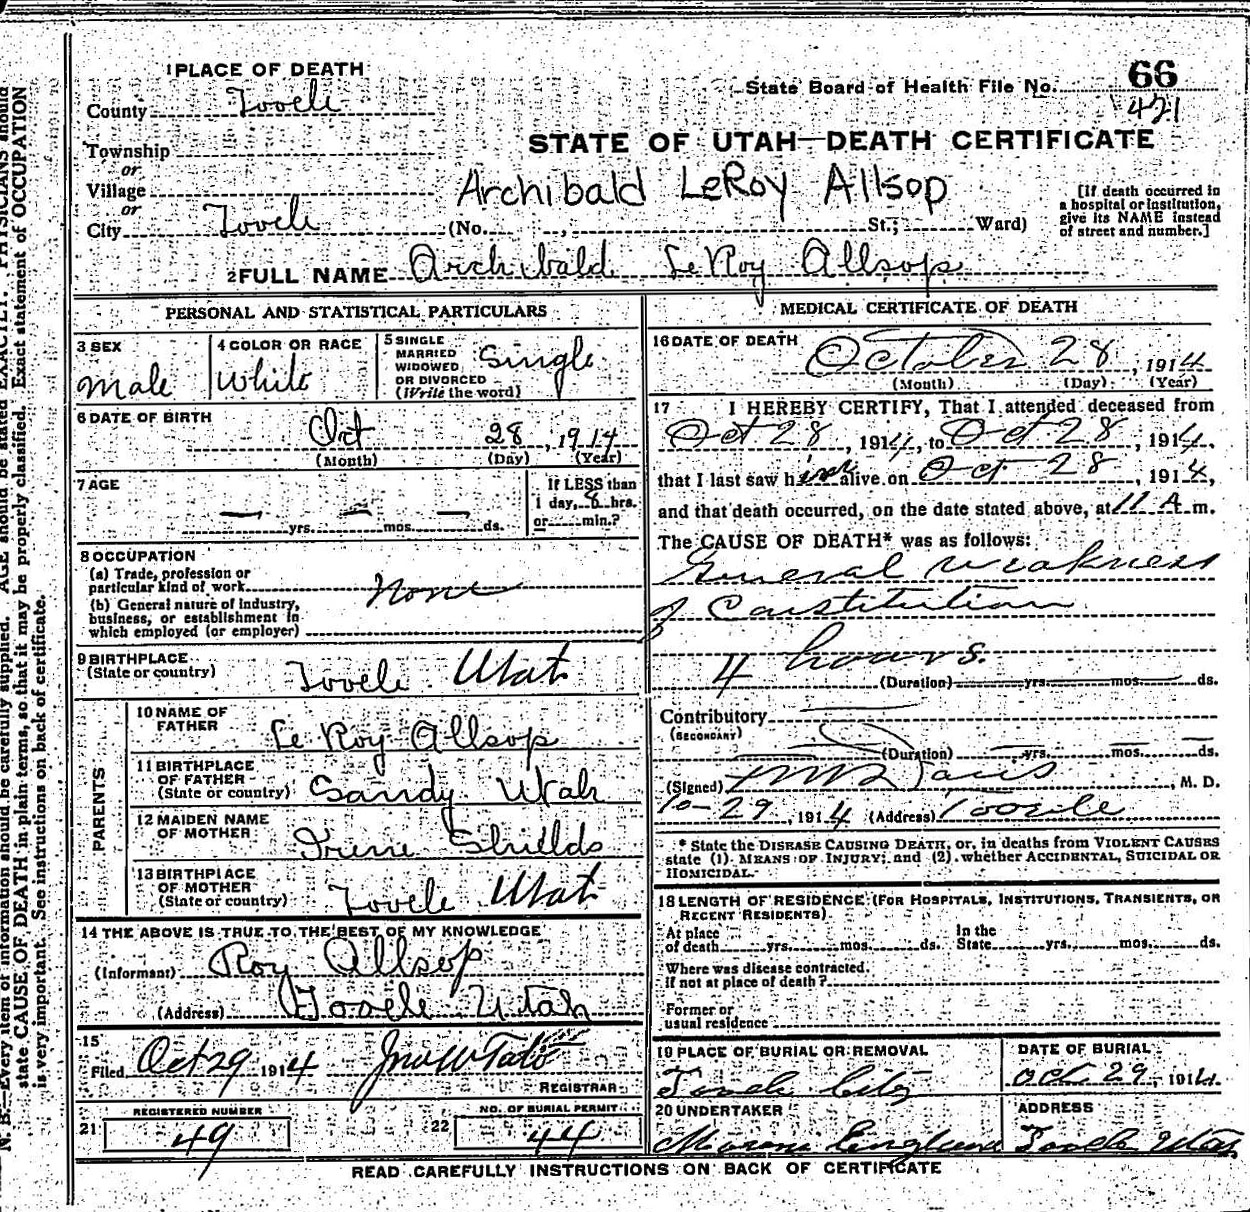 N. B.—Every item of information should be carefully supplied. AGE should be stated EXACTLY. PHYSICIANS should
state CAUSE OF DEATH in plain terms, so that it may be properly classified. Exact statement of OCCUPATION
is very important. See instructions on back of certificate.
1 PLACE OF DEATH
County Tooele
Township
or
Village
or
City Tooele
State Board of Health File No. 66
421
STATE OF UTAH—DEATH CERTIFICATE
Archibald LeRoy Allsop
(No. , St.; Ward)
[If death occurred in
a hospital or institution,
give its NAME instead
of street and number.]
2 FULL NAME Archibald LeRoy Allsop
PERSONAL AND STATISTICAL PARTICULARS
3 SEX
Male
4 COLOR OR RACE
White
5 SINGLE
MARRIED
WIDOWED
OR DIVORCED
(Write the word)
Single
6 DATE OF BIRTH
Oct 28, 1914
(Month) (Day) (Year)
7 AGE
— yrs. — mos. — ds.
If LESS than
1 day, 8 hrs.
or min.?
8 OCCUPATION
(a) Trade, profession or
particular kind of work
None
(b) General nature of industry,
business, or establishment in
which employed (or employer)
9 BIRTHPLACE
(State or country)
Tooele Utah
PARENTS
10 NAME OF
FATHER
Le Roy Allsop
11 BIRTHPLACE
OF FATHER
(State or country)
Sandy Utah
12 MAIDEN NAME
OF MOTHER
Irene Shields
13 BIRTHPLACE
OF MOTHER
(State or country)
Tooele Utah
14 THE ABOVE IS TRUE TO THE BEST OF MY KNOWLEDGE
(Informant) Roy Allsop
(Address) Tooele Utah
15
Filed Oct 29 1914
REGISTRAR
21
REGISTERED NUMBER
49
22
NO. OF BURIAL PERMIT
44
MEDICAL CERTIFICATE OF DEATH
16 DATE OF DEATH
October 28, 1914
(Month) (Day) (Year)
17 I HEREBY CERTIFY, That I attended deceased from
Oct 28, 1914, to Oct 28, 1914,
that I last saw him alive on Oct 28, 1914,
and that death occurred, on the date stated above, at 11 A m.
The CAUSE OF DEATH* was as follows:
General weakness
of Constitution
4 hours.
(Duration) yrs. mos. ds.
Contributory
(SECONDARY)
(Duration) yrs. mos. ds.
(Signed) Davis, M. D.
10-29, 1914 (Address) Tooele
* State the DISEASE CAUSING DEATH, or, in deaths from VIOLENT CAUSES
state (1) MEANS OF INJURY; and (2) whether ACCIDENTAL, SUICIDAL OR
HOMICIDAL.
18 LENGTH OF RESIDENCE (FOR HOSPITALS, INSTITUTIONS, TRANSIENTS, OR
RECENT RESIDENTS)
At place
of death yrs. mos. ds.
In the
State yrs. mos. ds.
Where was disease contracted.
if not at place of death?
Former or
usual residence
19 PLACE OF BURIAL OR REMOVAL
Tooele City
DATE OF BURIAL
Oct. 29, 1914
20 UNDERTAKER
Moroni England
ADDRESS
Tooele Utah
READ CAREFULLY INSTRUCTIONS ON BACK OF CERTIFICATE